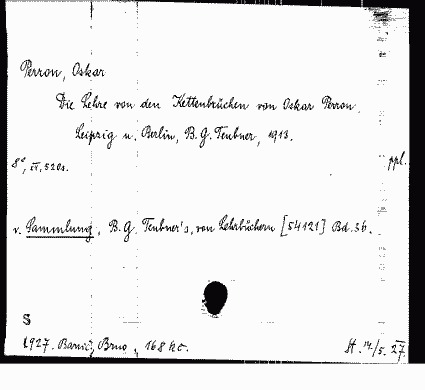 Perron, Oskar
Die Lehre von den Kettenbrüchen von Oskar Perron.
Leipzig u. Berlin, B. G. Teubner, 1913.
8°, 520s. ppl.
v. Sammlung, B. G. Teubner's, von Lehrbüchern [54121] Bd. 36.
S
1927. Barvič, Brno, 168 Kč. 14/5. 27.